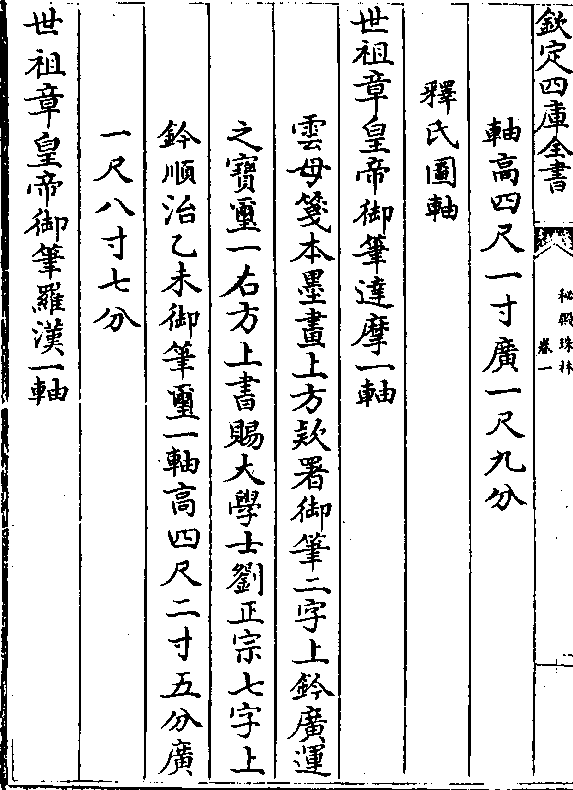 欽定四庫全書
秘殿珠林
卷一
軸高四尺一寸廣一尺九分
釋氏圖軸
世祖章皇帝御筆達摩一軸
雲母箋本墨畫上方欵署御筆二字上鈐廣運
之寶璽一右方上書賜大學士劉正宗七字上
鈐順治乙未御筆璽一軸高四尺二寸五分廣
一尺八寸七分
世祖章皇帝御筆羅漢一軸